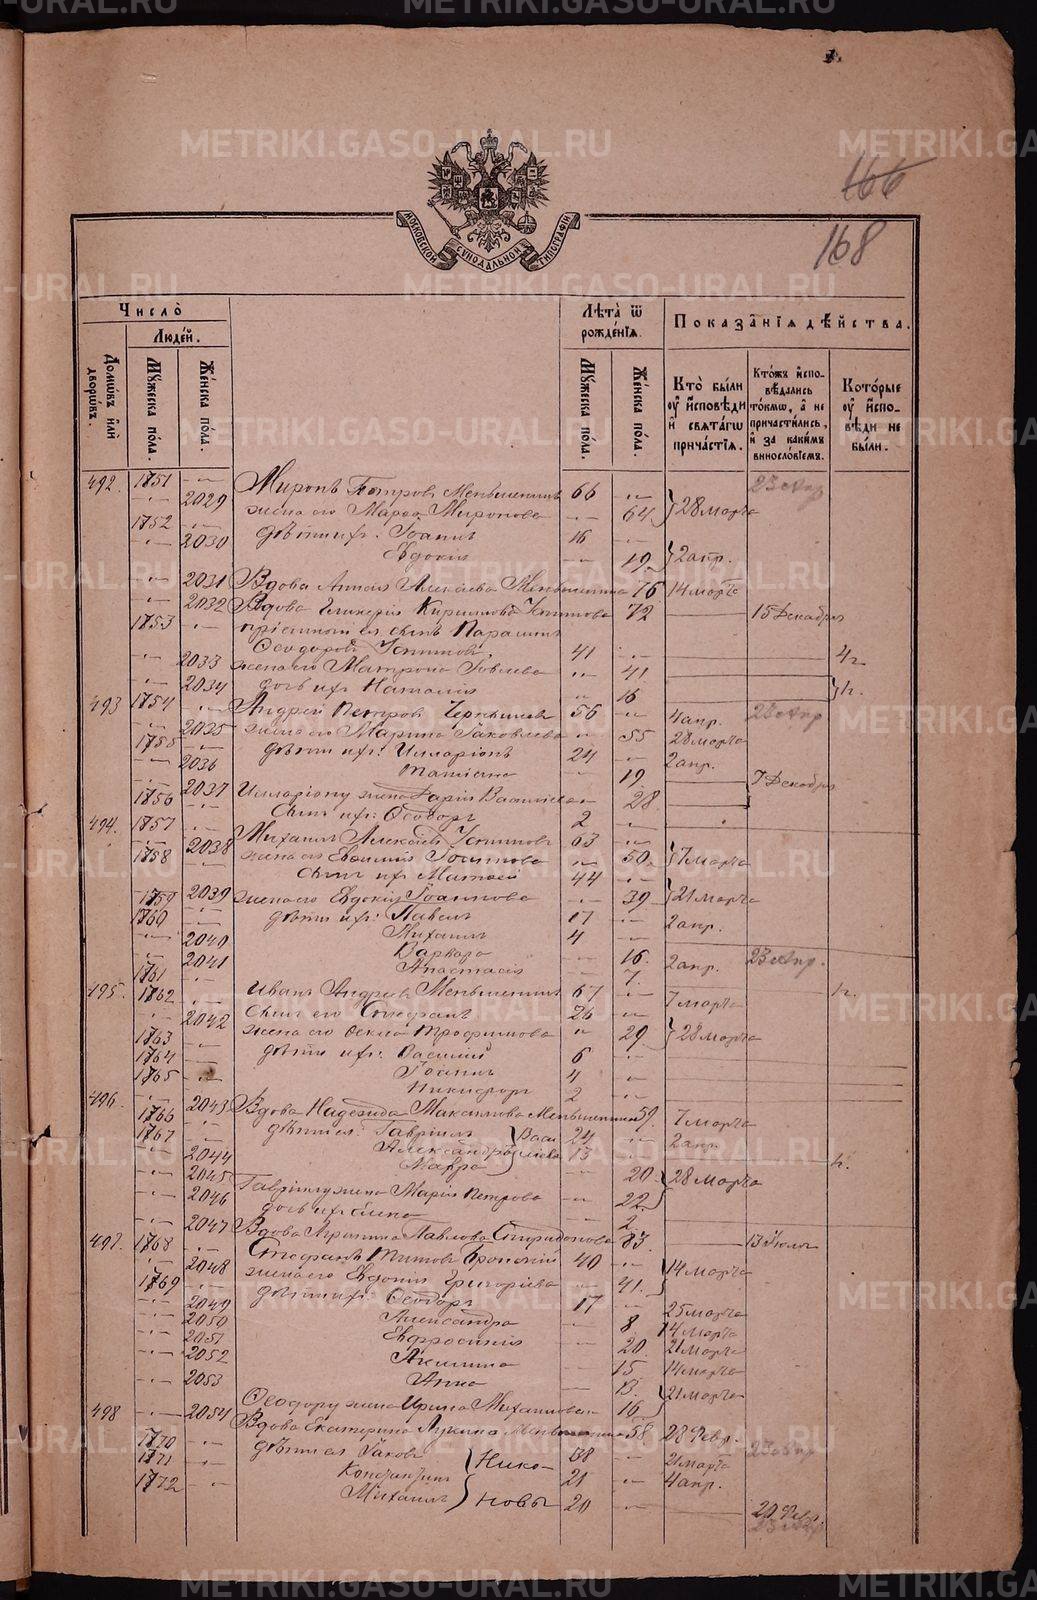 166
168
МОСКОВСКОЙ СѴНОДАЛЬНОЙ ТИПОГРАФІИ
Число̀
Людей.
Домѡвъ или дворѡвъ.
Мꙋжеска пола.
Женска пола.
Лѣта ѿ рожденїѧ.
Мꙋжеска пола.
Женска пола.
Показанїѧ дѣйства.
Кто были ᲂу҆ исповѣди и свѧтагѡ причастїѧ.
Ктожъ исповѣдались токмѡ, а не причастились, и за какимъ винословїемъ.
Которые ᲂу҆ исповѣди не были.
492. 1751 Миронъ Петровъ Меньшенинъ 66 23 Апр
2029 жена его Марѳа Миронова 64 28 марта
1752 дѣти ихъ: Іоаннъ 16
2030 Евдокія 19 2 апр.
2031 Вдова Алексѣева Меньшенина 76 14 марта
2032 Вдова Гликерія Кириллова 72 15 Декабря
1753 пріемный ея сынъ
Ѳеодоровъ 41 4 г.
2033 жена его Матрона Іовлева 41
2034 дочь ихъ Наталія 16 н.
493 1754 Андрей Петровъ 56 4 апр. 23 Апр
2035 жена его Марина Яковлева 55 28 марта
1755 дѣти ихъ: Илларіонъ 24 2 апр.
2036 Татіана 19 7 Декабря
2037 Илларіону жена Дарія Васильева 28
1756 Сынъ ихъ: Ѳеодоръ 2
494. 1757 Михаилъ Алексѣевъ 63
2038 жена его Евфимія 50 7 марта
1758 Сынъ ихъ Матѳей 44
2039 жена его Евдокія Іоаннова 39 21 марта
1759 дѣти ихъ: Павелъ 17 2 апр.
1760 Михаилъ 4
2040 Варвара 16 2 апр. 23 Апр.
2041 Анастасія 7
495. 1761 Иванъ Андреевъ Меньшенинъ 67 7 марта н.
1762 Сынъ его Стефанъ 26
2042 жена его Ѳекла Трофимова 29 28 марта
1763 дѣти ихъ: Василій 6
1764 Іоаннъ 4
1765 Никифоръ 2
496. 2043 Вдова Надежда Максимова Меньшенина 59. 7 марта
1766 дѣти ея: Гавріилъ 24 2 апр
1767 Александръ 13 н.
2044 Мавра 20 28 марта
2045 Гавріилу жена Марія Петрова 22
2046 дочь ихъ 2
2047 Вдова Павлова Спиридонова 83 13 Іюля
497. 1768 Стефанъ Титовъ 40 14 марта
2048 жена его Евдокія Григоріева 41
1769 дѣти ихъ: Ѳеодоръ 17 25 марта
2049 Александра 8 14 марта
2050 Евфросинія 20 21 марта
2051 Акилина 15 14 марта
2052 Анна 13
2053 Ѳеодору жена Ирина Михаилова 16 21 марта
498 2054 Вдова Екатерина Лукина 58 28 Февр.
1770 дѣти ея Яковъ Нико- 38 21 марта 23 Апр
1771 Константинъ 21 4 апр.
1772 Михаилъ новы 20 20 Февр.